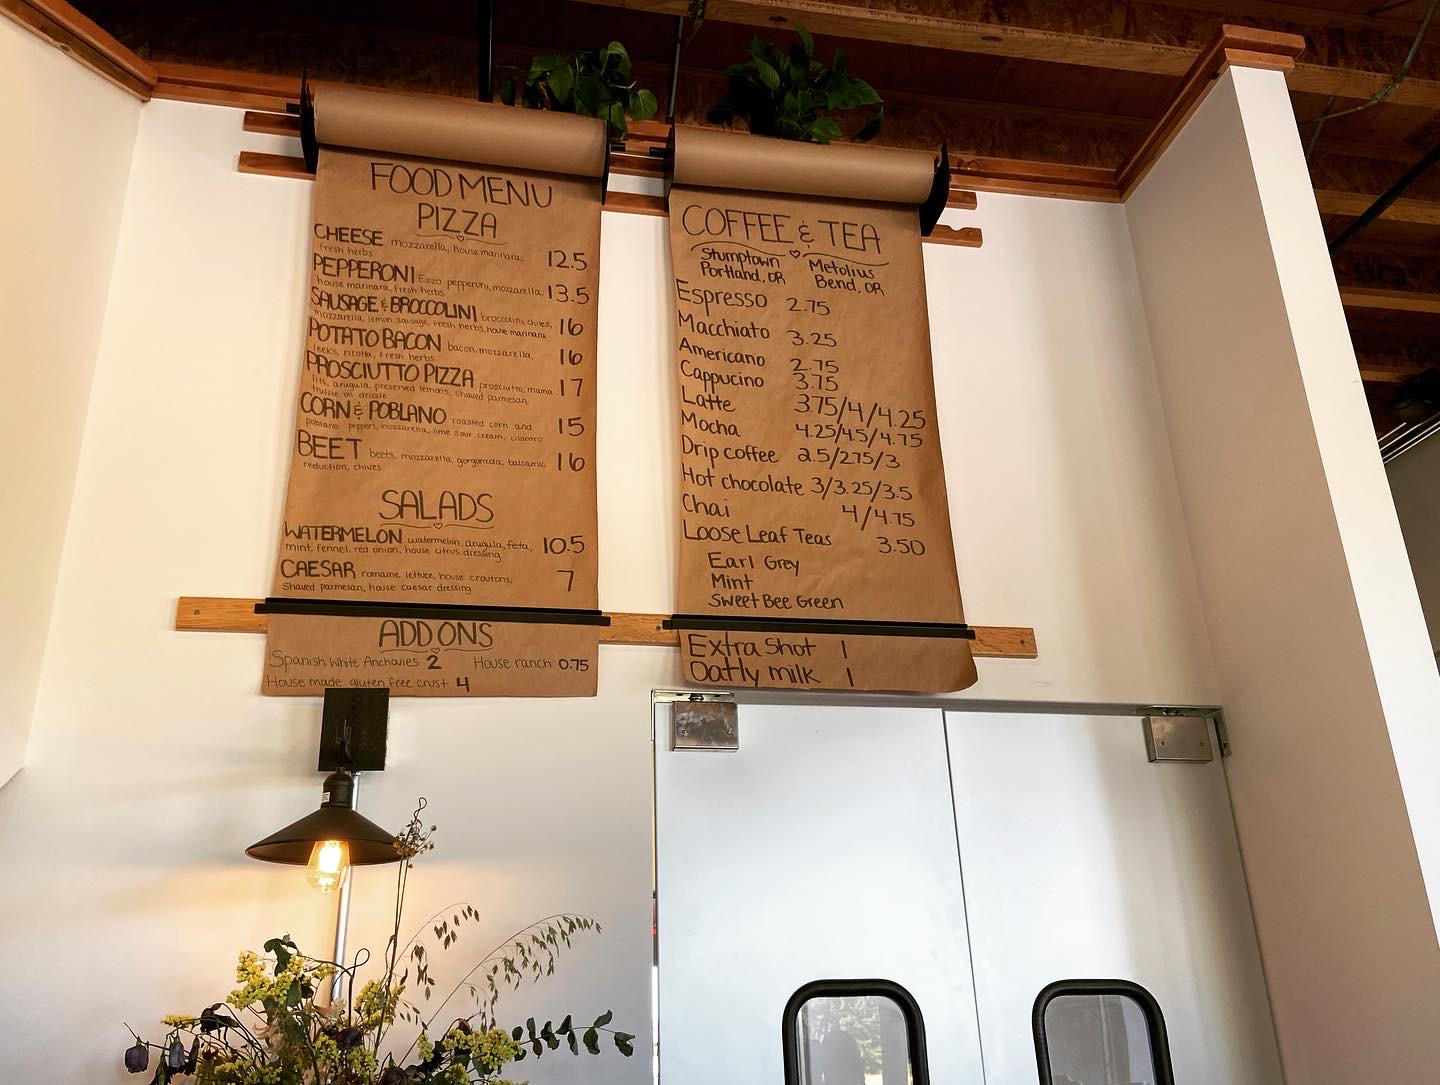 FOOD MENU
PIZZA
CHEESE mozzarella, house marinara 12.5
fresh herbs
PEPPERONI Ezzo pepperoni, mozzarella, 13.5
house marinara, fresh herbs
SAUSAGE & BROCCOLINI broccolini, chiles, 16
mozzarella, lemon, sausage, fresh herbs, house marinara
POTATO BACON bacon, mozzarella, 16
leeks, ricotta, fresh herbs
PROSCIUTTO PIZZA prosciutto, mama 17
lils, arugula, preserved lemons, shaved parmesan,
truffle oil drizzle
CORN & POBLANO roasted corn and 15
poblano peppers, mozzarella, lime sour cream, cilantro
BEET beets, mozzarella, gorgonzola, balsamic 16
reduction, chives
SALADS
WATERMELON watermelon, arugula, feta, 10.5
mint, fennel, red onion, house citrus dressing
CAESAR romaine lettuce, house croutons, 7
Shaved parmesan, house caesar dressing
ADD ONS
Spanish White Anchovies 2 House ranch 0.75
House made gluten free crust 4
COFFEE & TEA
Stumptown Metolius
Portland, OR Bend, OR
Espresso 2.75
Macchiato 3.25
Americano 2.75
Cappucino 3.75
Latte 3.75/4/4.25
Mocha 4.25/4.5/4.75
Drip coffee 2.5/2.75/3
Hot chocolate 3/3.25/3.5
Chai 4/4.75
Loose Leaf Teas 3.50
Earl Grey
Mint
Sweet Bee Green
Extra Shot 1
Oatly milk 1